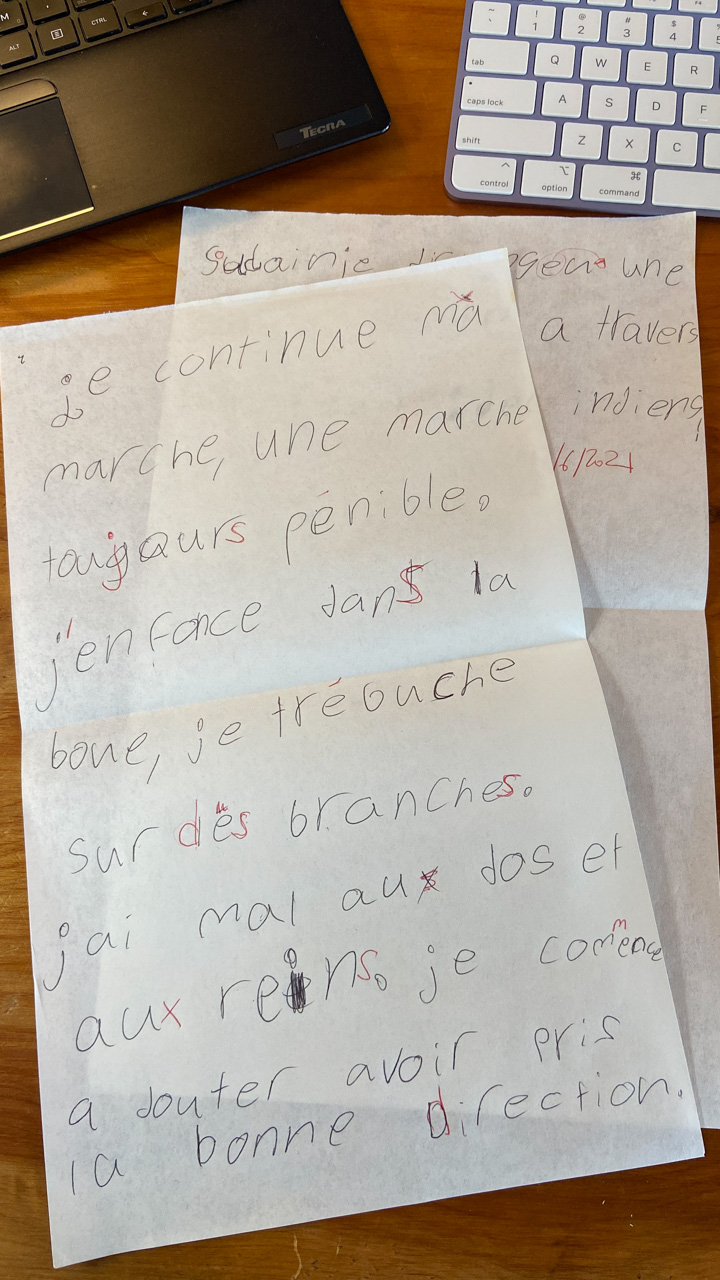 M
CTRL
ALT
TECRA
~
`
!
1
@
2
#
3
$
4
%
5
tab
Q
W
E
R
caps lock
A
S
D
F
shift
Z
X
C
control
option
command
une
a travers
indiens
/6/2021
je continue ma
marche, une marche
toujours pénible.
j'enfonce dans la
boue, je trébuche
sur des branches.
jai mal au dos et
aux reins. je commence
a douter avoir pris
la bonne direction.